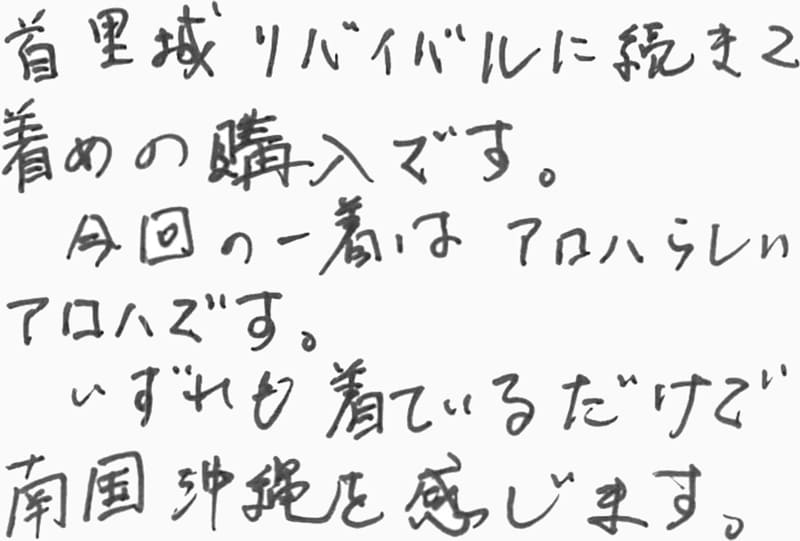 首里城リバイバルに続き2
着めの購入です。
今回の一着はアロハらしい
アロハです。
いずれも着ているだけで
南国沖縄を感じます。